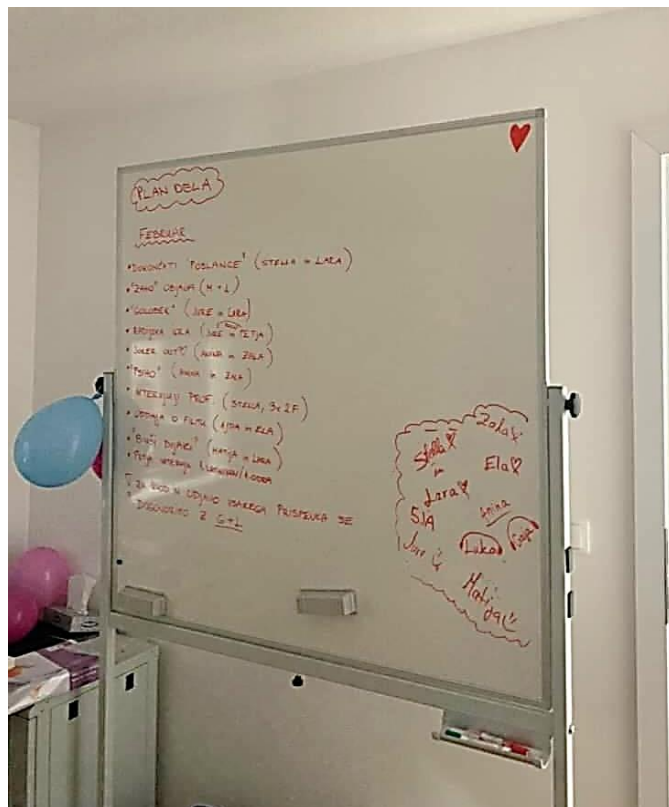 PLAN DELA
FEBRUAR
• DOKONČATI "POSLANCE" (STELLA in LARA)
OBJAVA (M + L)
• "GOLOBEK" (JURE in LARA)
• RADIJSKA IGRA (JURE in PETJA)
OUT (ANINA in ZALA)
• "PSIHO" (ANINA in ZALA)
• INTERVJUJI PROF. (STELLA, 3x 2F)
• ODDAJA O FILMU (AJDA in ELA)
• "BIVŠI DIJAKI" (MATJA in LARA)
• PETJA
ZA UVOD IN OBJAVO VSAKEGA PRISPEVKA SE
DOGOVORITE Z G+L
Zala
Stella
in
Ela
Lara
Anina
Sta
Jure
Luka
Gaja
Mati